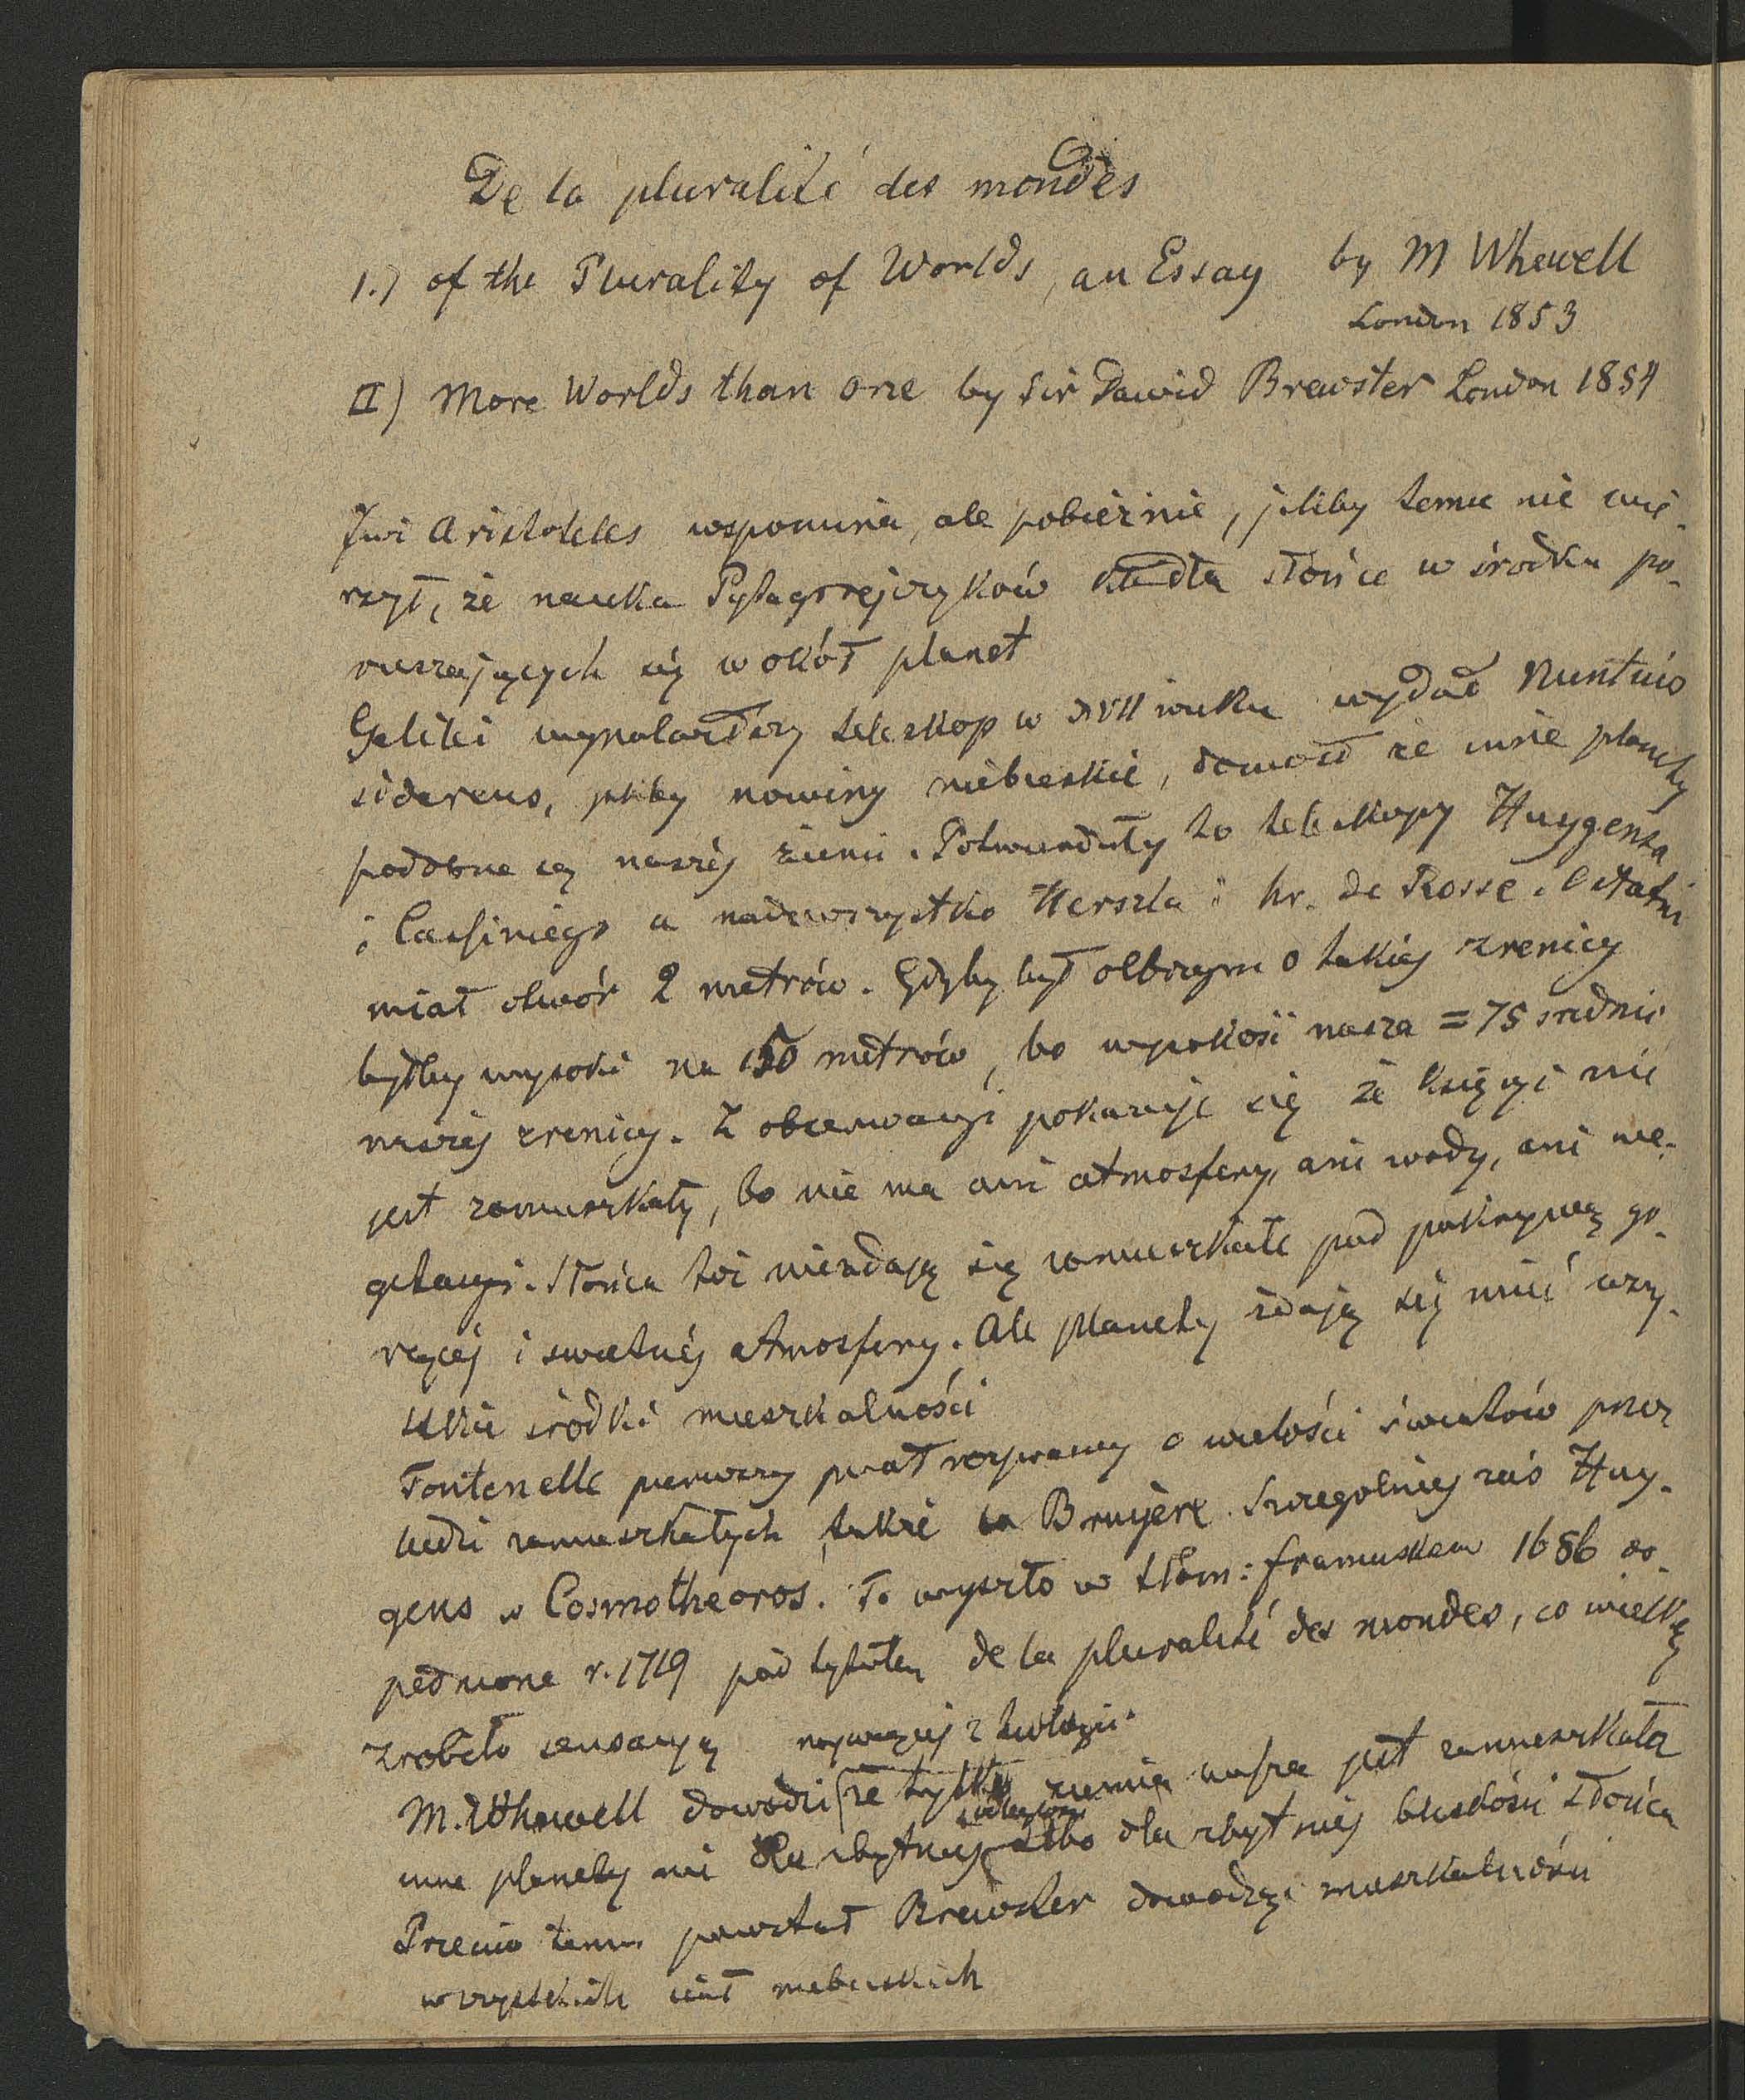 De la pluralité des mondes
1.) of the Plurality of Worlds, an Essay by M Whewell
London 1853
II) More Worlds than one by Sir Dawid Brewster London 1854
Już Aristoteles wspomina, ale pobieżnie, jakby temu nie wie-
rzył, że nauka Pytagorejczyków kładła słońce w środku po-
ruszających się wokół planet
Galilei wynalazłszy teleskop w XVII wieku wydał Nuntius
sidereus, jakby nowiny niebieskie, dowodł że inne planety
podobne są naszéj ziemi. Potwierdziły to teleskopy Huygensa
i Cassiniego a nadewszystko Herszla i hr. de Rosse. Ostatni
miał otwór 2 metrów. Gdyby był olbrzym o takiéj zrenicy
byłby wysoki na 150 metrów, bo wysokość nasza = 75 srednic
naszéj zrenicy. Z obserwacyi pokazuje się że księżyc nie
jest zamieszkały, bo nie ma ani atmosfery, ani wody, ani we-
getacyi. Słońca też niezdają się zamieszkałe pod pokrywą go-
rącéj i swietnéj atmosfery. Ale planety zdają się mieć wszy-
stkie środki mieszkalności
Fontenelle pierwszy pisał rozprawę o wielości światów przez
ludzi zamieszkałych, także La Bruyère. Szczególniej zaś Huy-
gens w Cosmotheoros. To wyszło w tłom: francuskem 1686 do-
pełnione r. 1719 pod tytułem de la pluralité des mondes, co wielką
zrobiło sensacyą najwięcéj z teologii.
M. Whewell dowodzi że tylko ziemia nasza jest zamieszkała
inne planety nie dla zbytniej odległości albo dla zbytniéj bliskości słońca
Przeciw temu powstał Brewster dowodząc mieszkalności
wszystkich ciał niebieskich